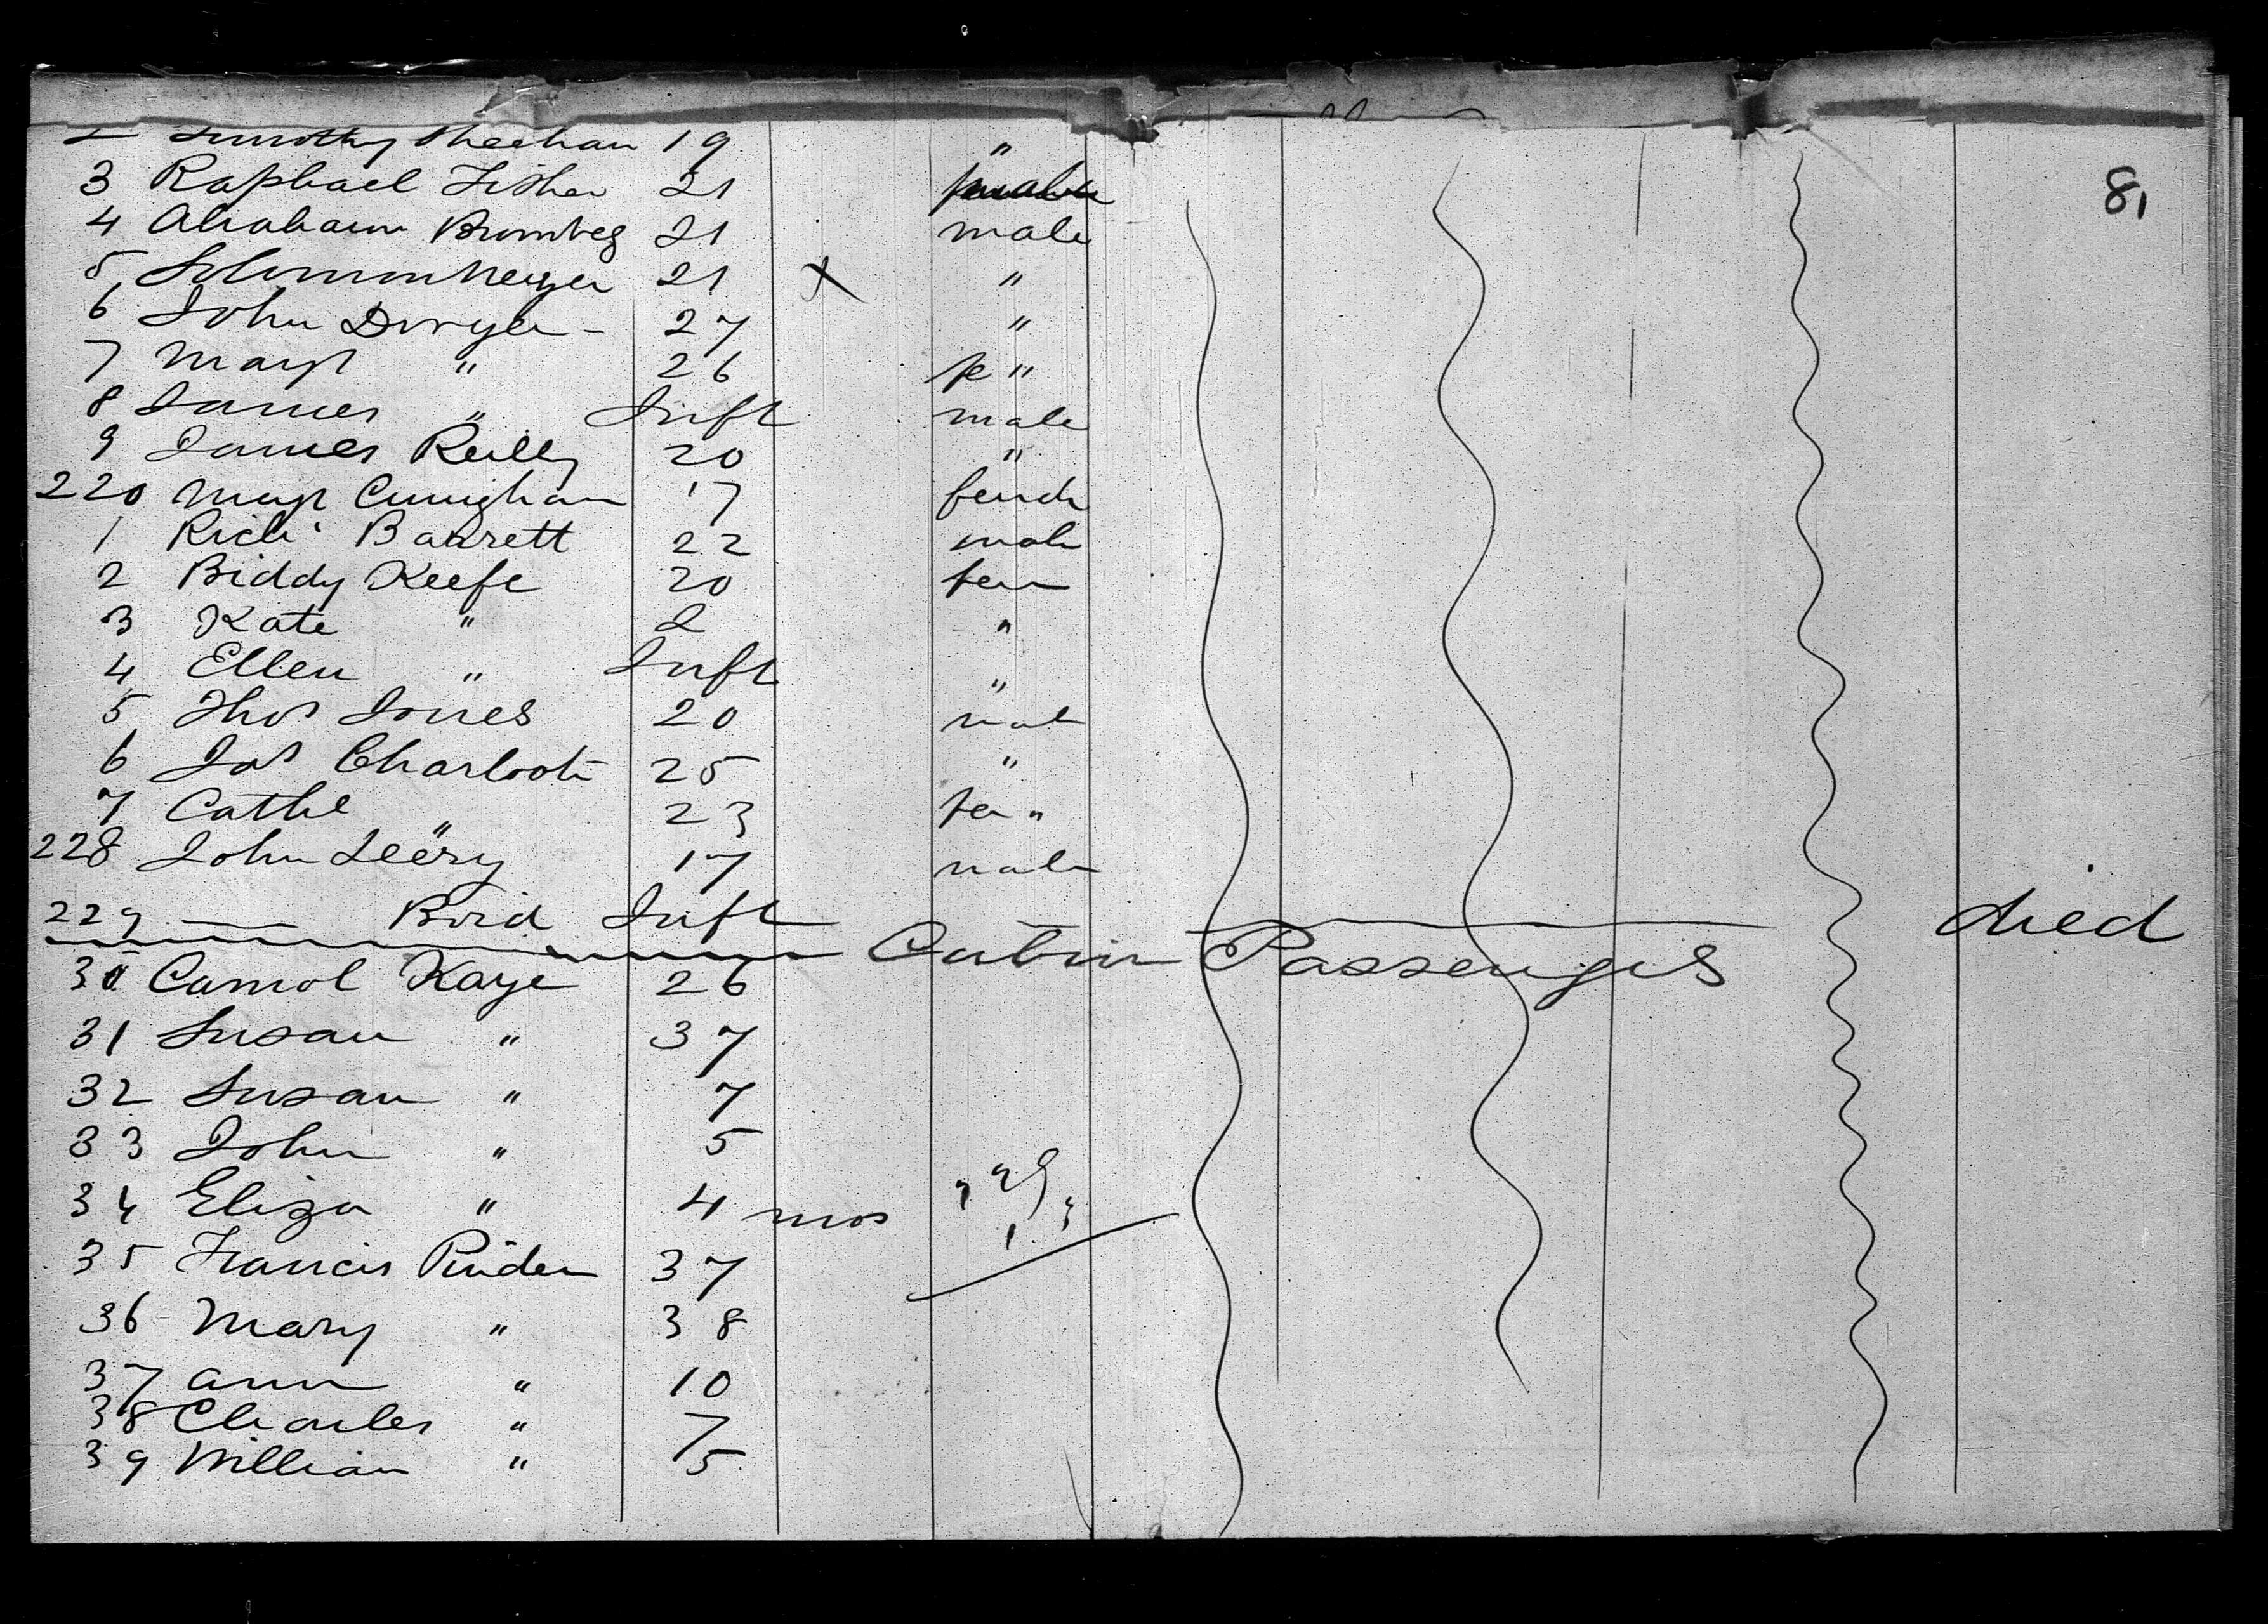 2 Timothy Sheehan 19 "
81
3 Raphael Fisher 21
4 Abraham Bromberg 21 male
5 Solomon Meyer 21 x "
6 John Dwyer - 27 "
7 Mary " 26 fe "
8 James " Inft male
9 James Reilly 20 "
220 Mary Cunigham 17 female
1 Richd Barrett 22 male
2 Biddy Keefe 20 fem
3 Kate " 2 "
4 Ellen " Inft "
5 Thos Jones 20 male
6 Jas 25 "
7 Cathe " 23 fem "
228 John Leery 17 male
229 —— Boid Inft died
Cabin Passengers
30 Kaye 26
31 Susan " 37
32 Susan " 7
33 John " 5
34 Eliza " 4 mos
35 Francis Pinder 37
36 Mary " 38
37 Ann " 10
38 Charles " 7
39 William " 5